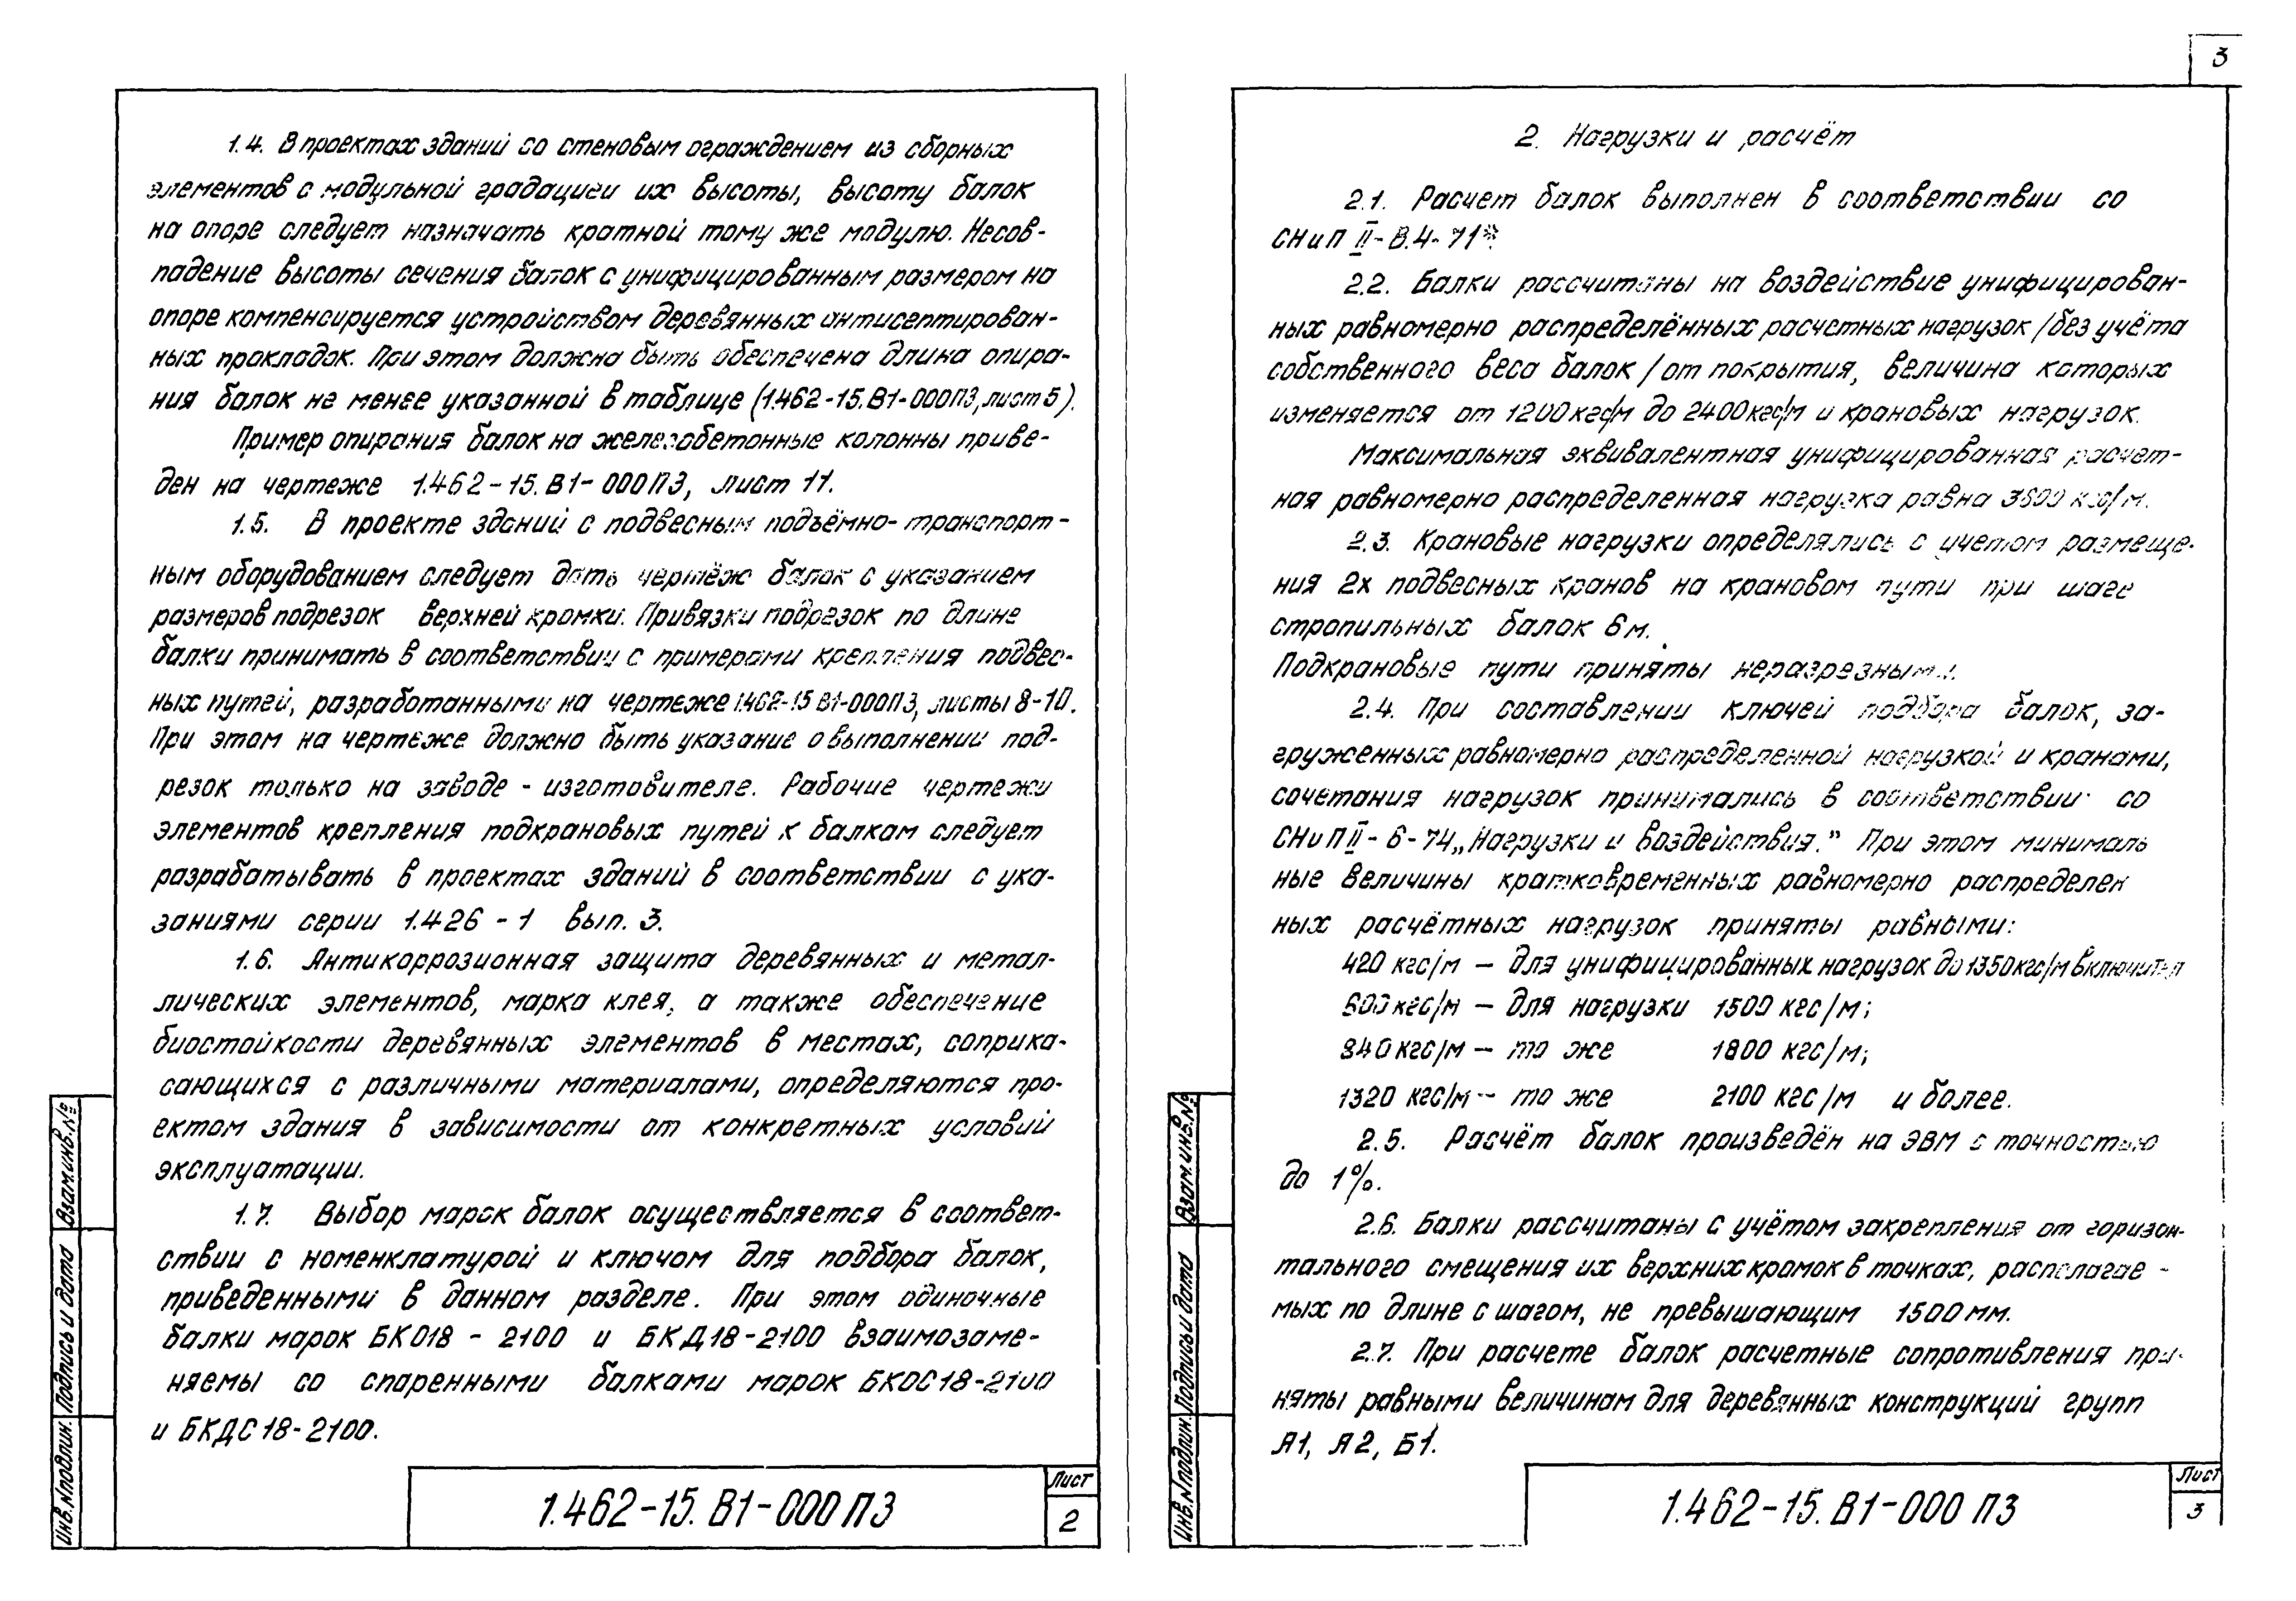 1.4. В проектах зданий со стеновым ограждением из сборных
элементов с модульной градацией их высоты, высоту балок
на опоре следует назначать кратной тому же модулю. Несов-
падение высоты сечения балок с унифицированным размером на
опоре компенсируется устройством деревянных антисептирован-
ных прокладок. При этом должна быть обеспечена длина опира-
ния балок не менее указанной в таблице (1.462-15.В1-000ПЗ, лист 5).
Пример опирания балок на железобетонные колонны приве-
ден на чертеже 1.462-15.В1-000ПЗ, лист 11.
1.5. В проекте зданий с подвесным подъёмно-транспорт-
ным оборудованием следует дать чертёж балок с указанием
размеров подрезок верхней кромки. Привязки подрезок по длине
балки принимать в соответствии с примерами крепления подвес-
ных путей, разработанными на чертеже 1.462-15 В1-000ПЗ, листы 8-10.
При этом на чертеже должно быть указание о выполнении под-
резок только на заводе - изготовителе. Рабочие чертежи
элементов крепления подкрановых путей к балкам следует
разрабатывать в проектах зданий в соответствии с ука-
заниями серии 1.426-1 вып. 3.
1.6. Антикоррозионная защита деревянных и метал-
лических элементов, марка клея, а также обеспечение
биостойкости деревянных элементов в местах, соприка-
сающихся с различными материалами, определяются про-
ектом здания в зависимости от конкретных условий
эксплуатации.
1.7. Выбор марок балок осуществляется в соответ-
ствии с номенклатурой и ключом для подбора балок,
приведенными в данном разделе. При этом одиночные
балки марок БКО18-2100 и БКД18-2100 взаимозаме-
няемы со спаренными балками марок БКОС18-2100
и БКДС18-2100.
Взам.инв.№
Подпись и дата
Инв.№подлин.
1.462-15.В1-000 ПЗ
Лист
2
3
2. Нагрузки и расчёт
2.1. Расчет балок выполнен в соответствии со
СНиП II-В.4-71*.
2.2. Балки рассчитаны на воздействие унифицирован-
ных равномерно распределённых расчетных нагрузок /без учёта
собственного веса балок/ от покрытия, величина которых
изменяется от 1200кгс/м до 2400кгс/м и крановых нагрузок.
Максимальная эквивалентная унифицированная расчет-
ная равномерно распределенная нагрузка равна кгс/м.
2.3. Крановые нагрузки определялись с учетом размеще-
ния 2х подвесных кранов на крановом пути при шаге
стропильных балок 6м.
Подкрановые пути приняты неразрезными.
2.4. При составлении ключей подбора балок, за-
груженных равномерно распределенной нагрузкой и кранами,
сочетания нагрузок принимались в соответствии со
СНиП II-6-74 „Нагрузки и воздействия." При этом минималь
ные величины кратковременных равномерно распределен
ных расчётных нагрузок приняты равными:
420 кгс/м — для унифицированных нагрузок до 1350кгс/м включител
600 кгс/м — для нагрузки 1500 кгс/м;
840 кгс/м — то же 1800 кгс/м;
1320 кгс/м — то же 2100 кгс/м и более.
2.5. Расчёт балок произведён на ЭВМ с точностью
до 1%.
2.6. Балки рассчитаны с учётом закрепления от горизон-
тального смещения их верхних кромок в точках, располагае-
мых по длине с шагом, не превышающим 1500 мм.
2.7. При расчете балок расчетные сопротивления при-
няты равными величинам для деревянных конструкций групп
А1, А2, Б1.
Взам.инв.№
Подпись и дата
Инв.№подлин.
1.462-15.В1-000 ПЗ
Лист
3